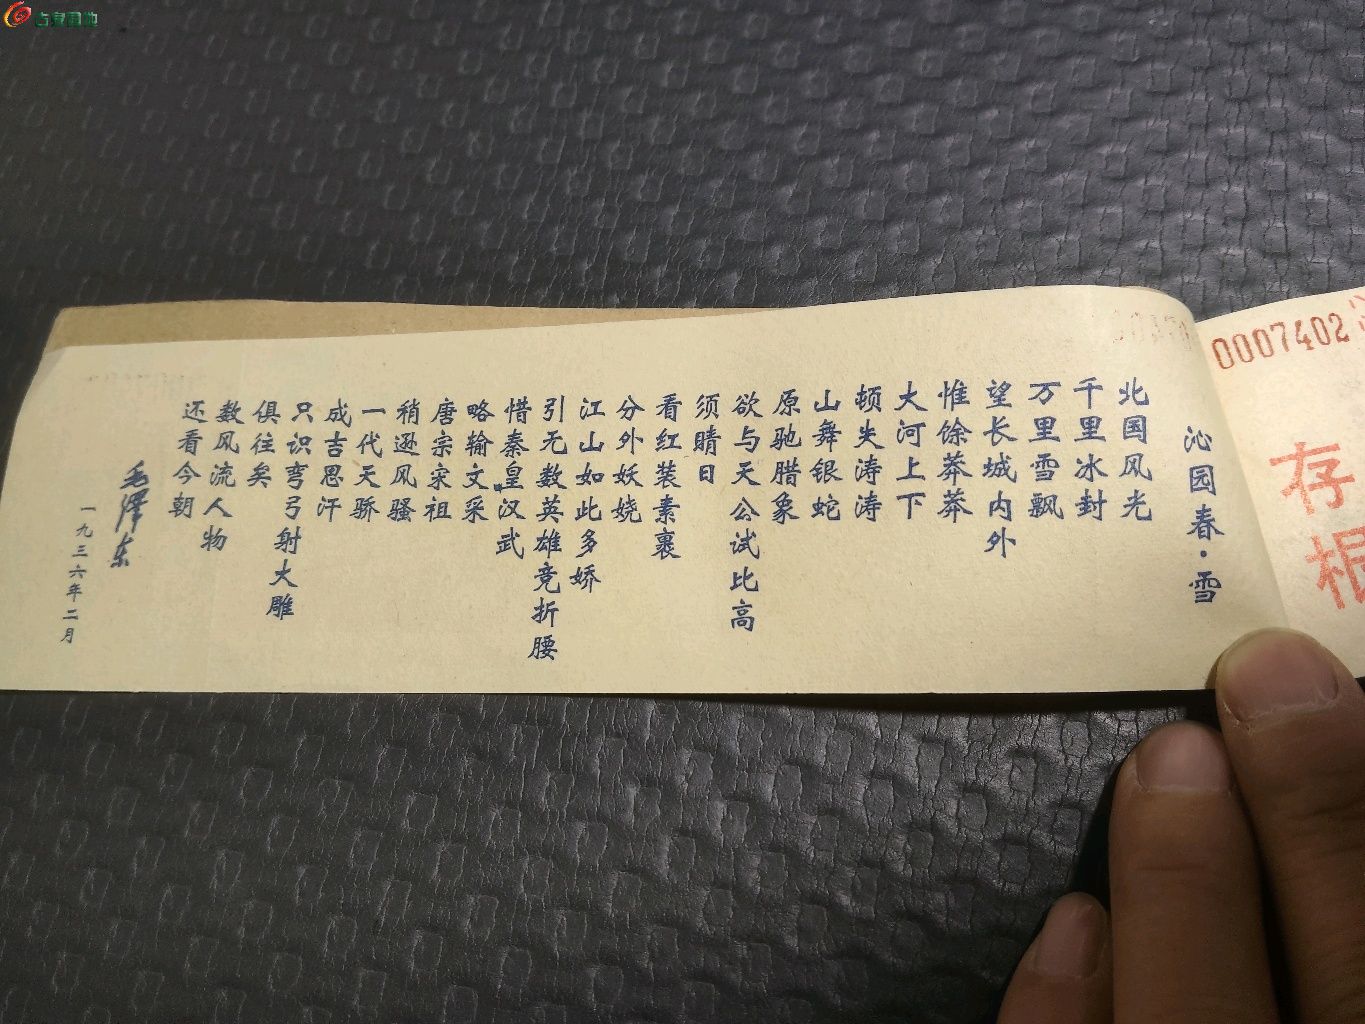 古泉园地
0007402
存根
沁园春·雪
北国风光
千里冰封
万里雪飘
望长城内外
惟馀莽莽
大河上下
顿失涛涛
山舞银蛇
原驰腊象
欲与天公试比高
须晴日
看红装素裹
分外妖娆
江山如此多娇
引无数英雄竞折腰
惜秦皇汉武
略输文采
唐宗宋祖
稍逊风骚
一代天骄
成吉思汗
只识弯弓射大雕
俱往矣
数风流人物
还看今朝
毛泽东
一九三六年二月